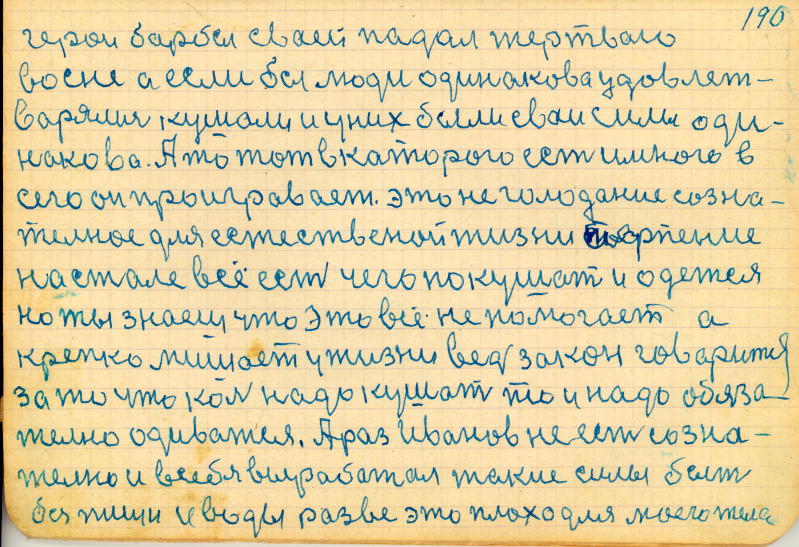 190
герои барбы сваей падал жертваю
восне а если бы люди одинакова удовлет-
варялис кушали и у них были сваи силы оди-
накова. А то тот в каторого ест и много в
сего он проигравает. Это не голодание созна-
телное для естественой жизни терпение
на стале всё ест чего покушат и одется
но ты знаеш что это всё не помогает а
крепко мишает у жизни вед закон говарится
за то что кол надо кушат то и надо обяза-
телно одиватся. А раз Иванов не ест созна-
телно и в себя вырабатал такие силы быт
без пищи и воды разве это плохо для моего тела